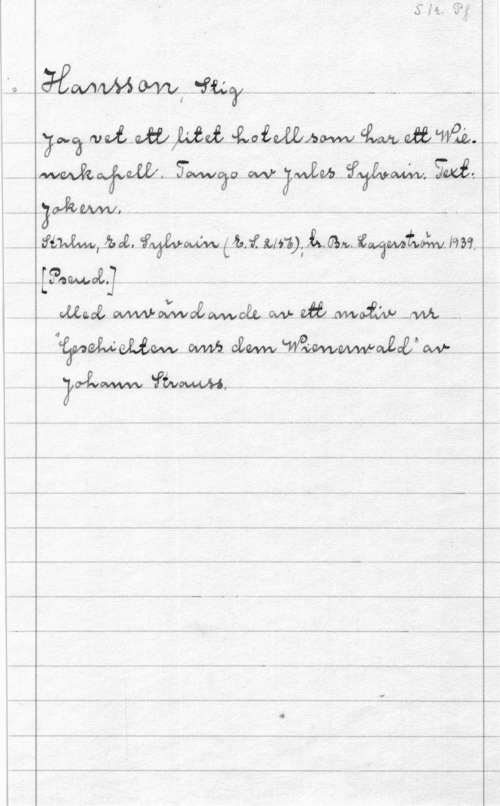 S/r. Pf.
Hansson, Stig
Jag vet ett litet hotell som har ett Wie-
nerkapell. Tango av Jules Sylvain. Text:
Jokern.
Sthlm, Ed. Sylvain (E.S. 2/57), tr. Br. Lagerström 1939.
[Pseud.]
Med användande av ett motiv ur
"Geschichten aus dem Wienerwald" av
Johann Strauss.